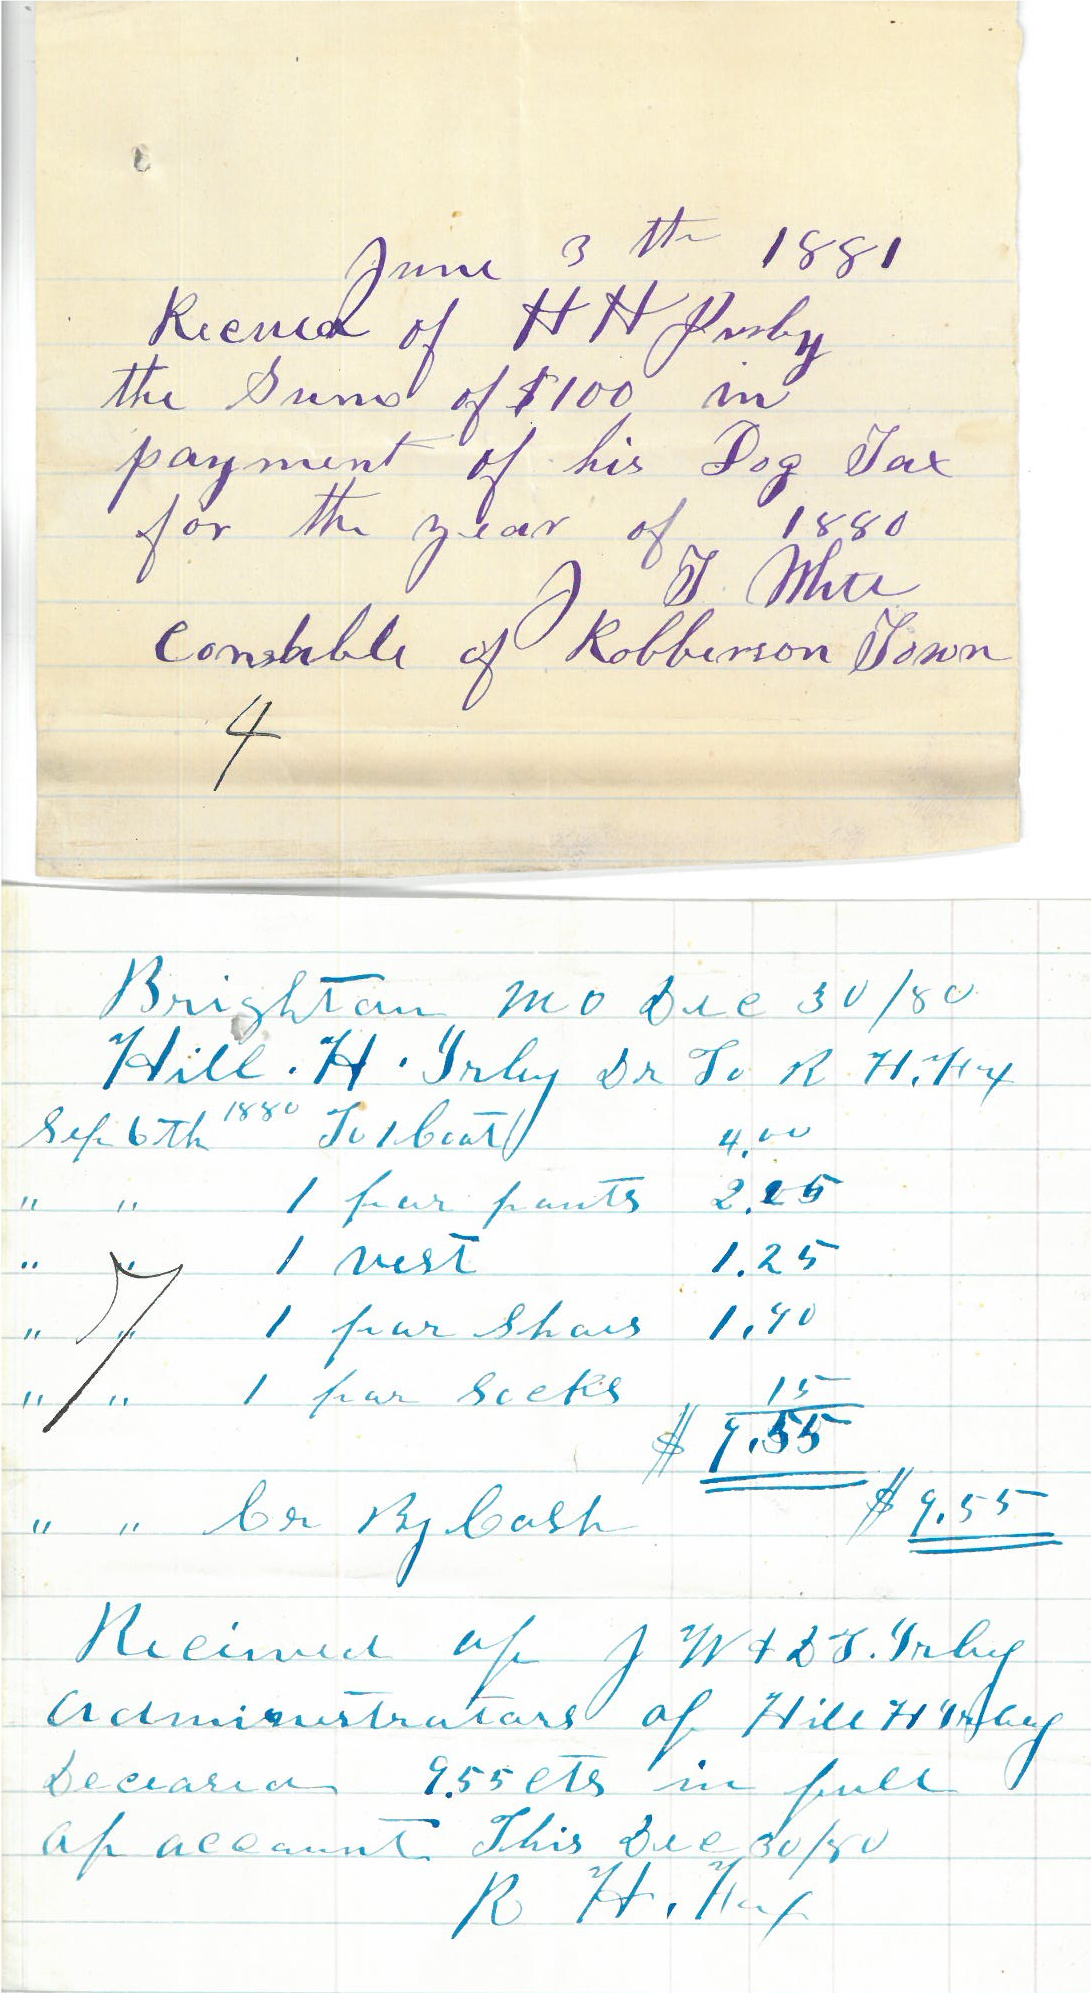 June 3th 1881
Recived of H H Irsby
the Sums of $100 in
payment of his Dog Tax
for the year of 1880
J T White
Constable of Robberson Town
4
Brighton Mo Dec 30/80
Hill. H. Irby Dr To R H. Hax
Sep 6th 1880 To 1 Coat 4.00
" " 1 par pants 2.25
" " 1 vest 1.25
" " 1 par Shoes 1.90
" " 1 par Socks 15
7
$ 9.55
" " Cr By Cash $ 9.55
Recived of J W & D T. Irby
administrators of Hill H Irby
Deceased 9.55 cts in full
of account This Dec 30/80
R H.